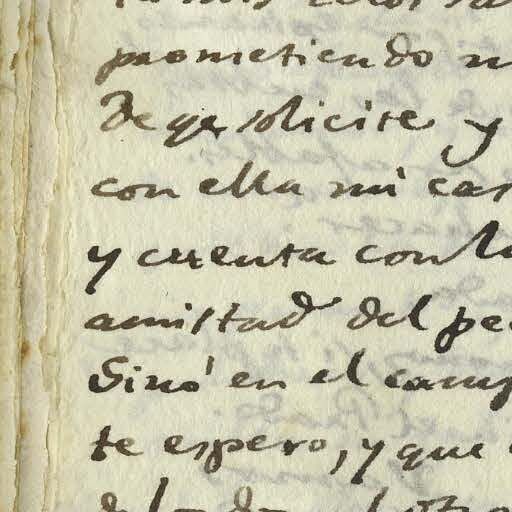 prometiendo
De qe solicite y
con ella mi cas
y cuenta con la
amistad del pe
Sinó en el camp
te espero, y que